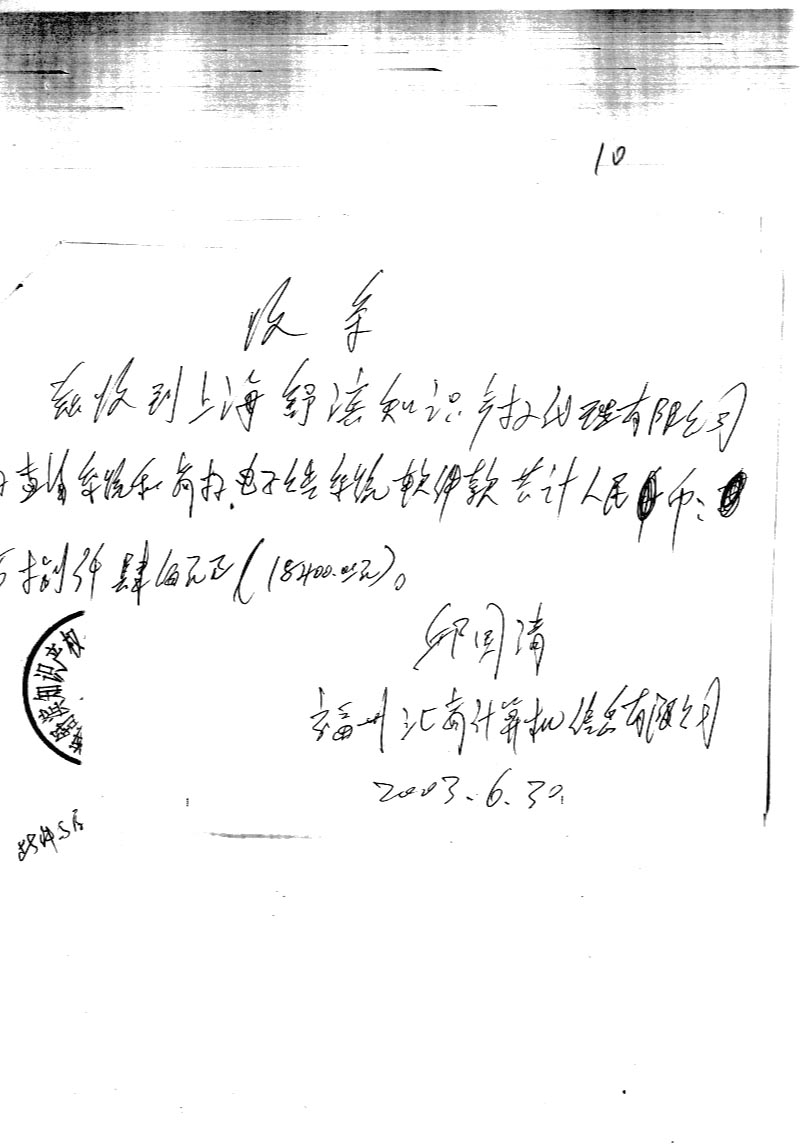 10
收条
兹收到上海舒漾知识产权代理有限公司
查询系统和商标电子公告系统软件款共计人民币:
捌仟肆佰元正(18400.00元)。
邱国清
福州汇商计算机信息有限公司
2003.6.30
知识产权